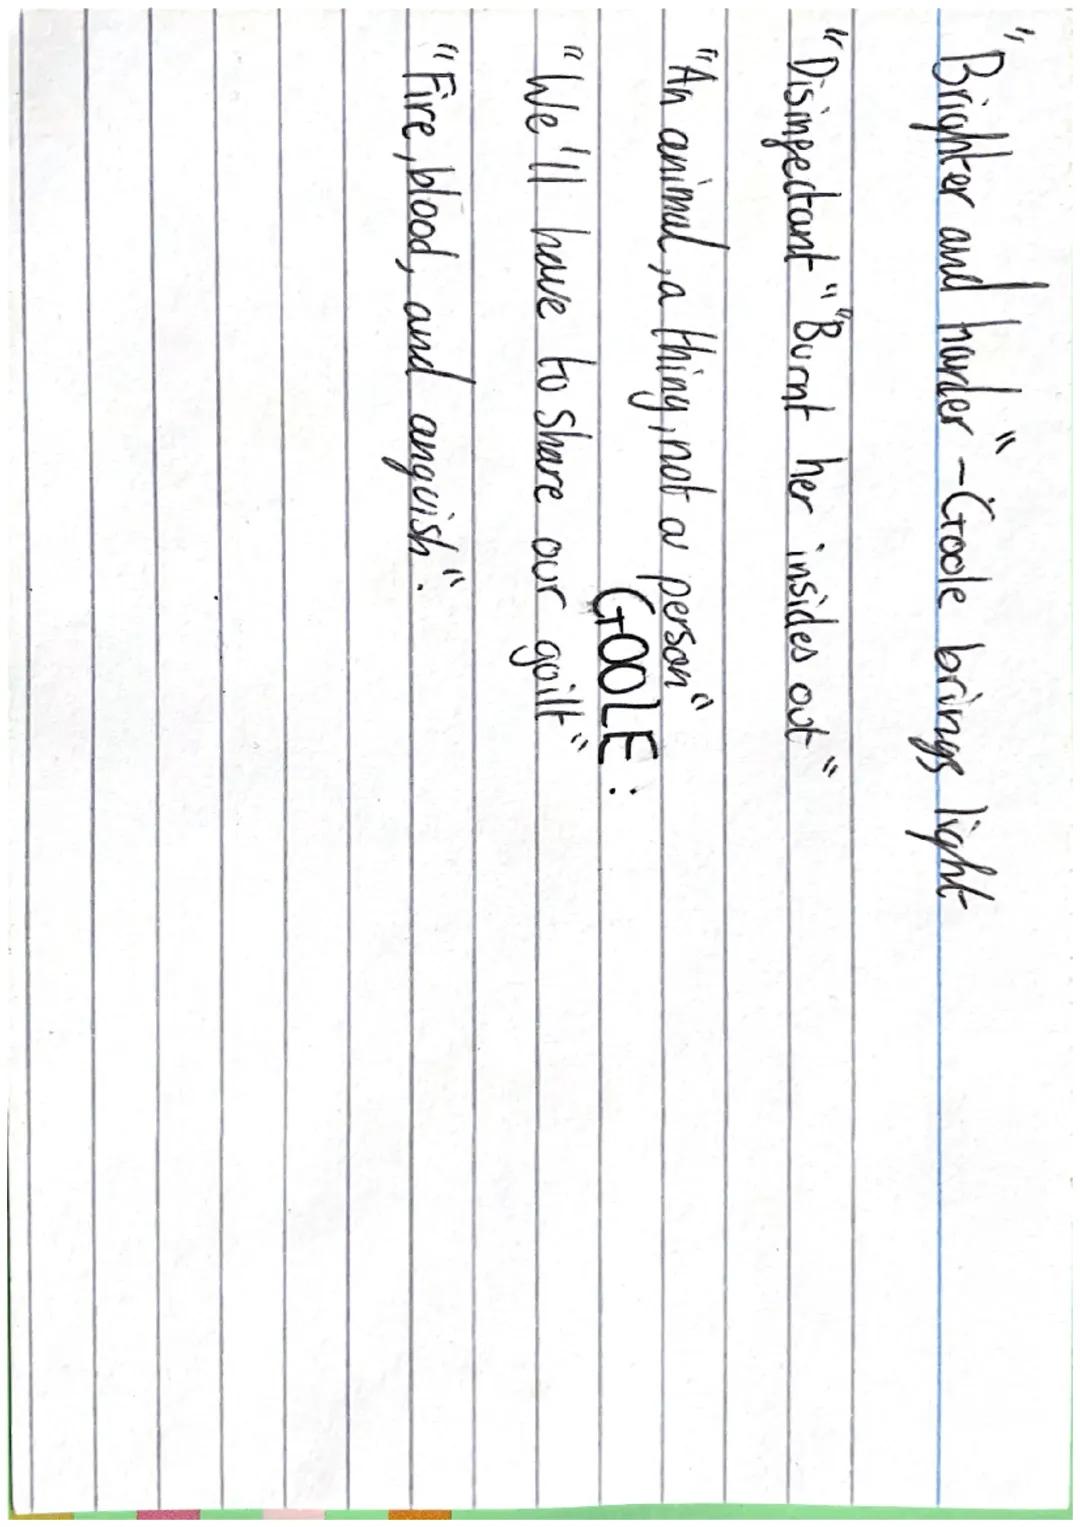 "Brighter and harder" - Goole brings light
"Disinfectant" "Burnt her insides out"
"An animal, a thing, not a person"
GOOLE:
"We'll have to share our guilt"
"Fire, blood, and anguish".